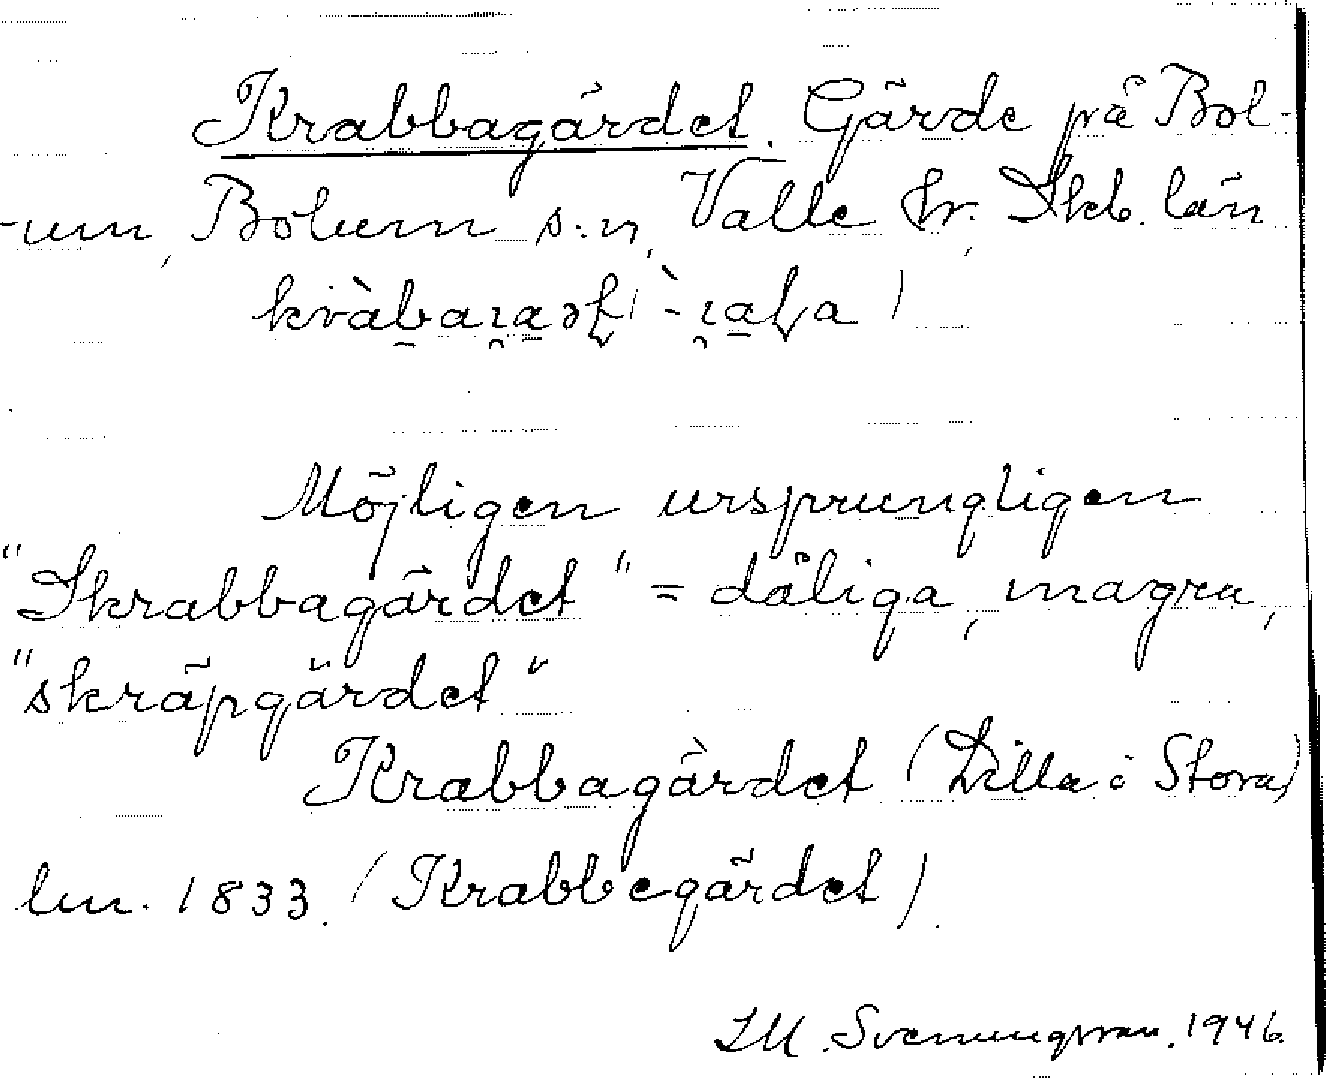 Krabbagärdet. Gärde på Bol-
-um, Bolum s:n, Valle hr. Skb. län
Möjligen ursprungligen
"Skrabbagärdet" = dåliga, magra,
"skräpgärdet"
Krabbagärdet (Lilla o Stora)
lm. 1833. (Krabbegärdet).
Svenungsson. 1946.